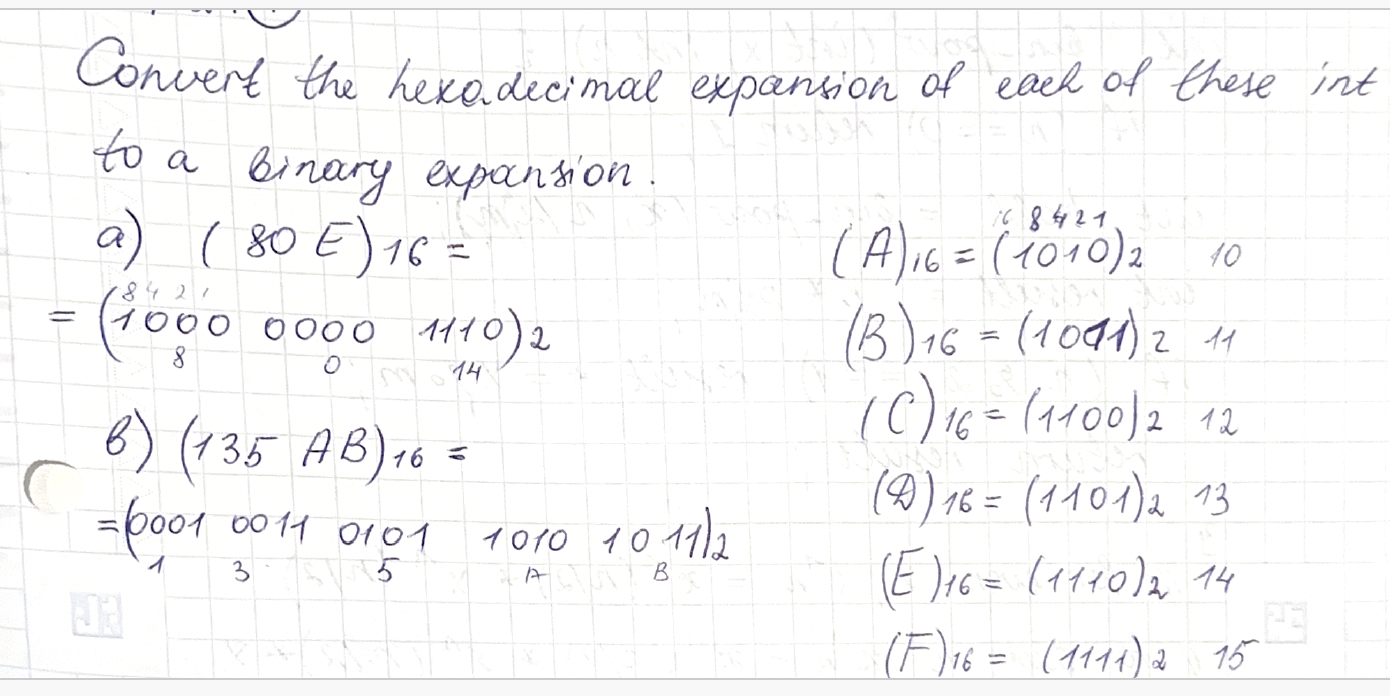 Convert the hexadecimal expansion of each of these int
to a binary expansion.
a) (80E)16 =
8 4 2 1
= (1000 0000 1110)2
8 0 14
в) (135 AB)16 =
= (0001 0011 0101 1010 1011)2
1 3 5 A B
16 8 4 2 1
(A)16 = (1010)2 10
(B)16 = (1011)2 11
(C)16 = (1100)2 12
(D)16 = (1101)2 13
(E)16 = (1110)2 14
(F)16 = (1111)2 15